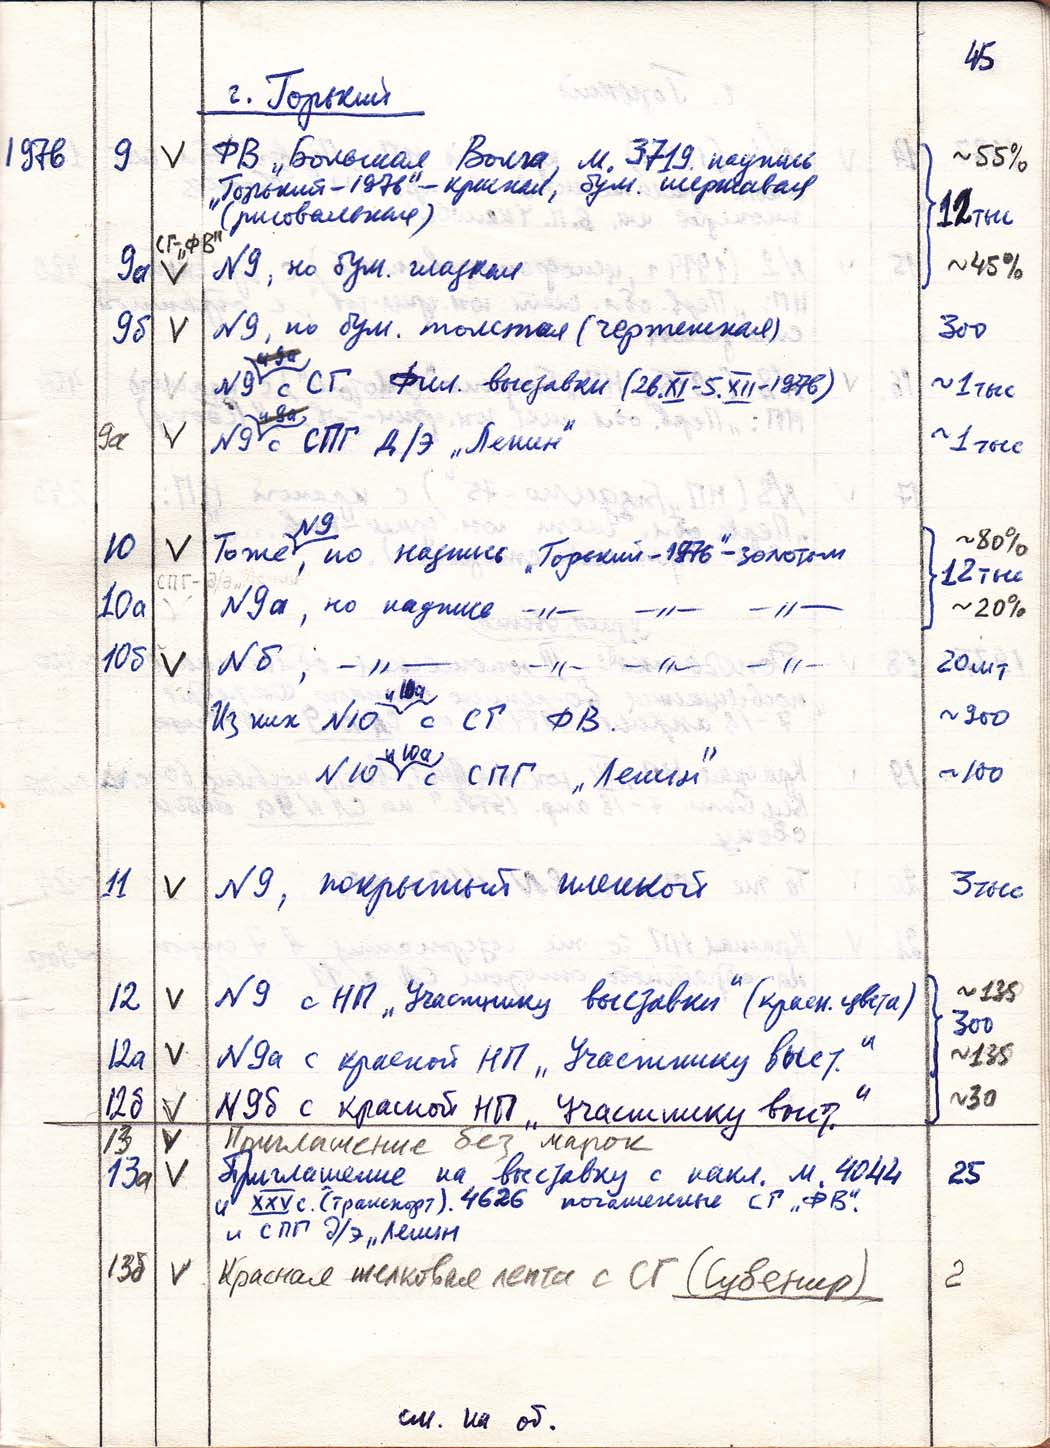 45
г. Горький
1976 9 V ФВ „Большая Волга, м. 3719. надпись ~55%
„Горький-1976"-красная, бум. шержавая
(рисовальная) 12 тыс
СГ-„ФВ"
9а V N9, но бум. гладкая ~45%
9б V N9, но бум. толстая (чертежная) 300
и 9а
N9 с СГ Фил. выставки (26.XI-5.XII-1976) ~1 тыс
и 9а
9а V N9 с СПГ Д/Э „Ленин" ~1 тыс
N9
10 V Тоже, но надпись „Горький-1976"-золотом ~80%
12 тыс
СПГ-
10а N9а, но надпись -„- -„- -„- ~20%
10б V Nб, -„- -„- -„- -„- 20 шт
и 10а
Из них N10 с СГ ФВ. ~900
и 10а
N10 с СПГ „Ленин" ~100
11 V N9, покрытый пленкой 3 тыс
12 V N9 с НП „Участнику выставки" (красн. цвета) ~135
300
12а V N9а с красной НП „Участнику выст." ~135
12б V N9б с красной НП „Участнику выст." ~30
13 V Приглашение без марок
13а V Приглашение на выставку с накл. м. 4044 25
и XXV с. (транспорт). 4626 погашенные СГ „ФВ".
и СПГ д/э „Ленин
13б V Красная шелковая лента с СГ (Сувенир) 2
см. на об.